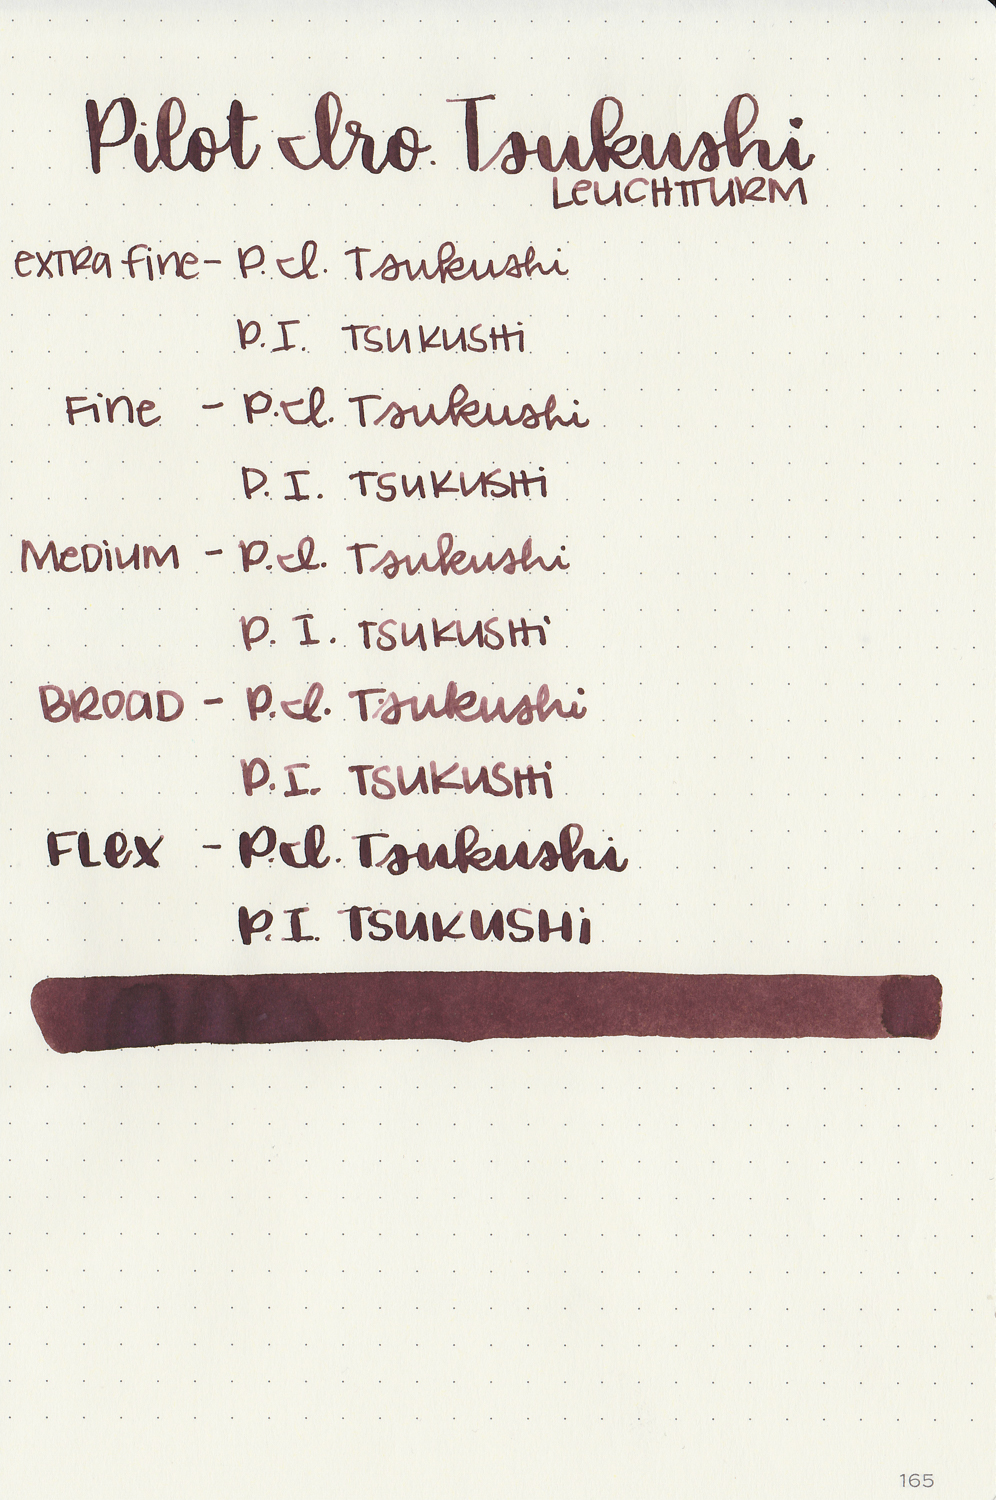 Pilot Iro. Tsukushi
LEUCHTTURM
extra fine - P.I. Tsukushi
P.I. TSUKUSHi
Fine - P.I. Tsukushi
P.I. TSUKUSHi
MeDiUM - P.I. Tsukushi
P.I. TSUKUSHi
BROAD - P.I. Tsukushi
P.I. TSUKUSHi
FLex - P.I. Tsukushi
P.I. TSUKUSHi
165